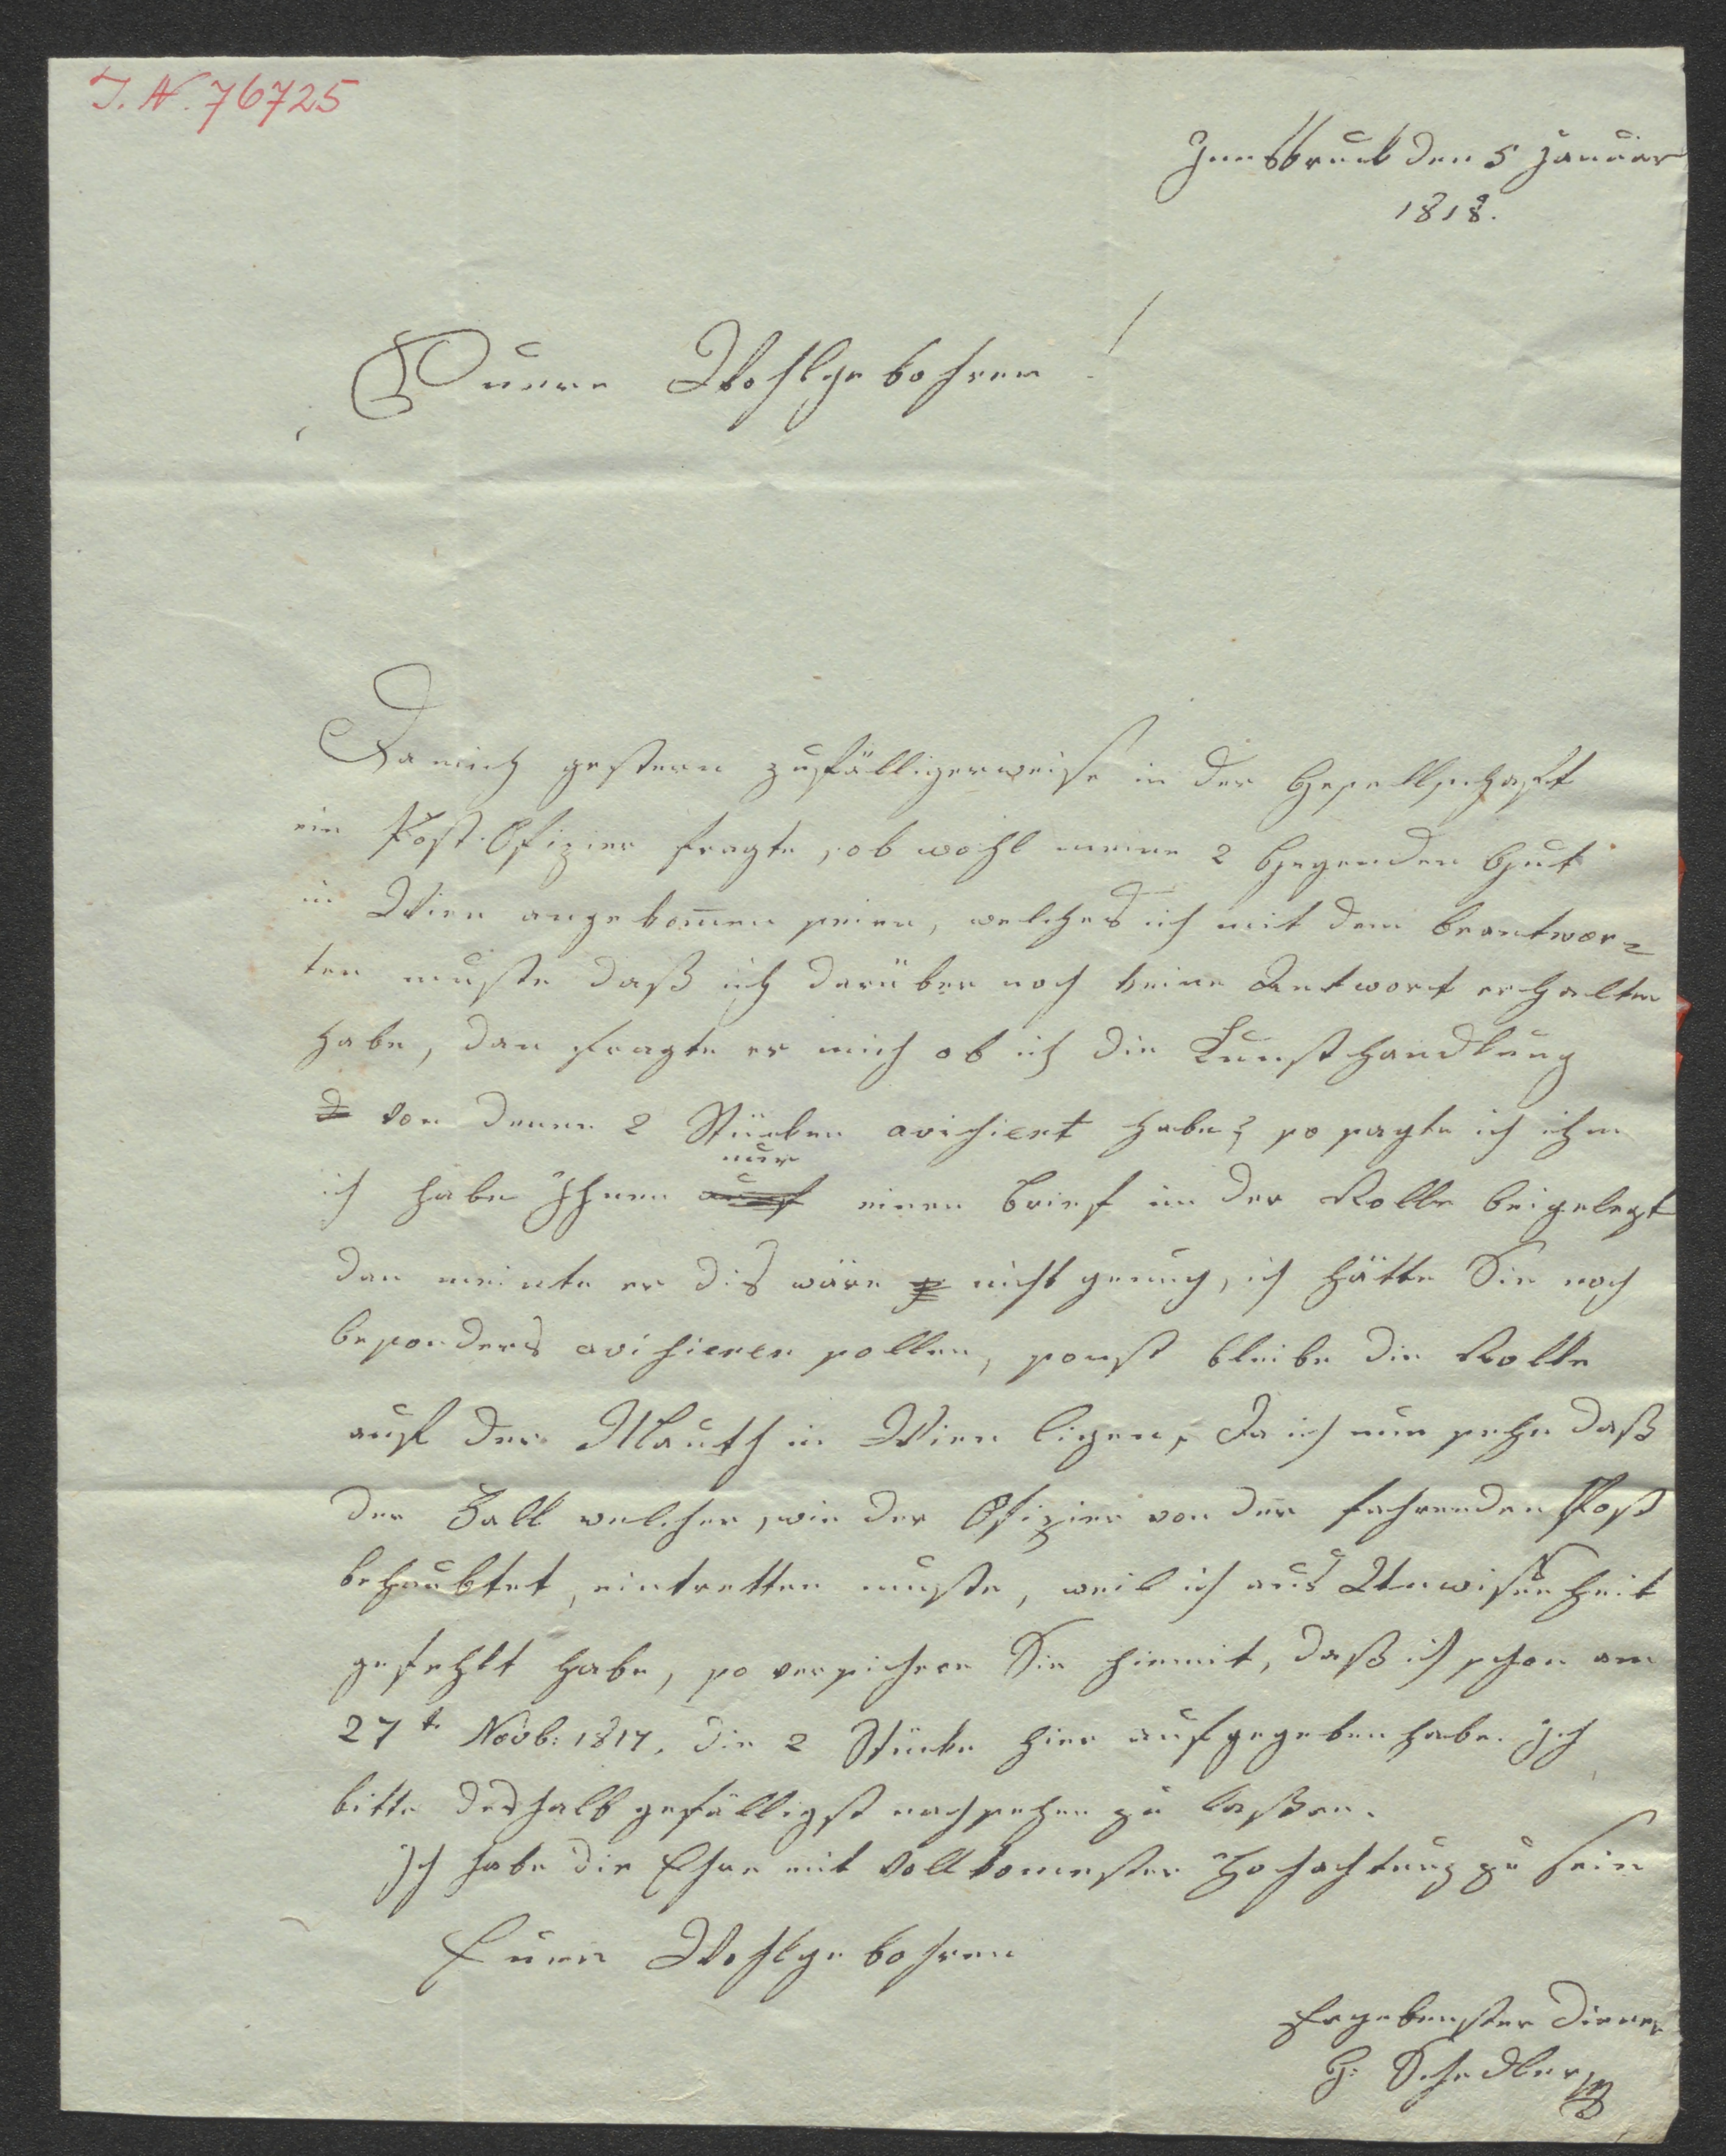 I. N. 76725
Innsbruck den 5 Januar
1818.
Euere Wohlgebohren!
Da mich gestern zufälligerweise in der Gesellschaft
ein Post-Ofizier fragte, ob wohl meine 2 Gegenden Gut
in Wien angekom̄en seien, welches ich mit dem beantwor=
ten muste daß ich darüber noch keine Antwort erhalten
habe, dan fragte er mich ob ich die Kunsthandlung
von denen 2 Stücken avisiert habe, so sagte ich ihm
ich habe Ihnen nur einen Brief in der Rolle beigelegt
dan meinte er dis wäre nicht genug, ich hätte Sie noch
besonders avisieren sollen, sonst bleibe die Rolle
auf der Mauth in Wien ligen, Da ich nun sehe daß
der Fall welcher, wie der Ofizier von der fahrenden Post
behaubtet, eintretten muste, weil ich aus Unwisenheit
gefehlt habe, so versichere Sie hiemit, daß ich schon am
27t Novb: 1817. die 2 Stücke hier aufgegeben habe. Ich
bitte deshalb gefälligst nachsehen zu laßen.
Ich habe die Ehre mit vollkomester Hochachtung zu sein
Euer Wohlgebohren
Ergebenster Diener
G: Schedler